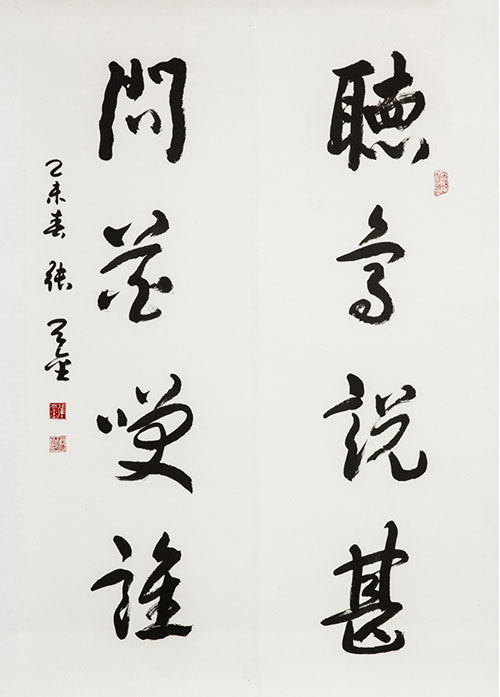 聽鳥說甚
問花笑誰
乙未春 張